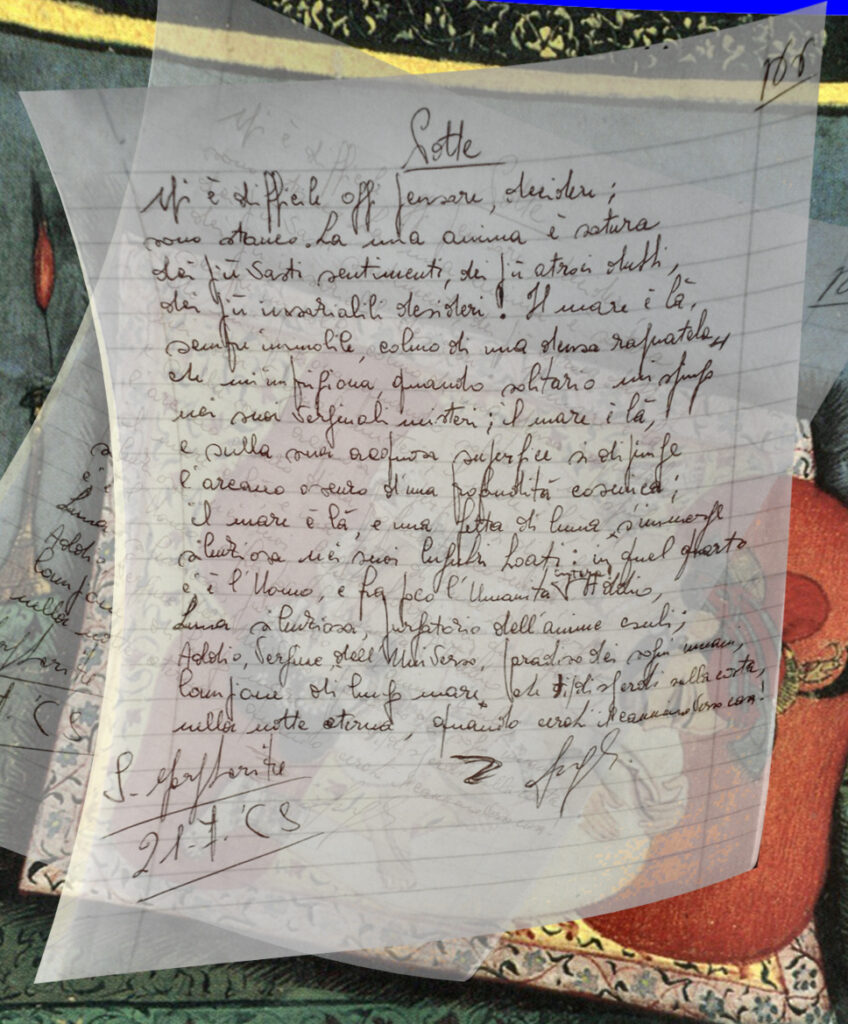 166
Notte
Mi è difficile oggi pensare, decidere;
sono stanco. La mia anima è satura
dei più vasti sentimenti, dei più atroci dubbi,
dei più insaziabili desideri! Il mare è là,
sempre immobile, colmo di una densa ragnatela
che mi imprigiona, quando solitario mi spingo
nei suoi verginali misteri; il mare è là,
e sulla sua acquosa superfice si dipinge
l'arcano oscuro d'una profondità cosmica;
il mare è là, e una fetta di luna s'immerge
silenziosa nei suoi lugubri boati: in quel quarto
c'è l'Uomo, e fra poco l'Umanità intera Addio,
Luna silenziosa, purgatorio dell'anime esuli;
Addio, Vergine dell'Universo, paradiso dei sogni umani,
lampione di lungo mare, che ti disperdi sulla costa,
nella notte eterna, quando cerchi il cammino verso casa!
S. Margherita
21.7.